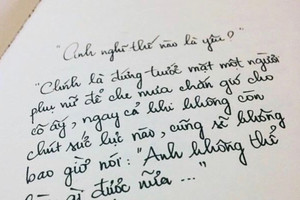 "Anh nghĩ thế nào là yêu?"
"Chính là đứng trước mặt một người
phụ nữ để che mưa chắn gió cho
cô ấy, ngay cả khi không còn
chút sức lực nào, cũng sẽ không
bao giờ nói: "Anh không thể
gì được nữa ..."